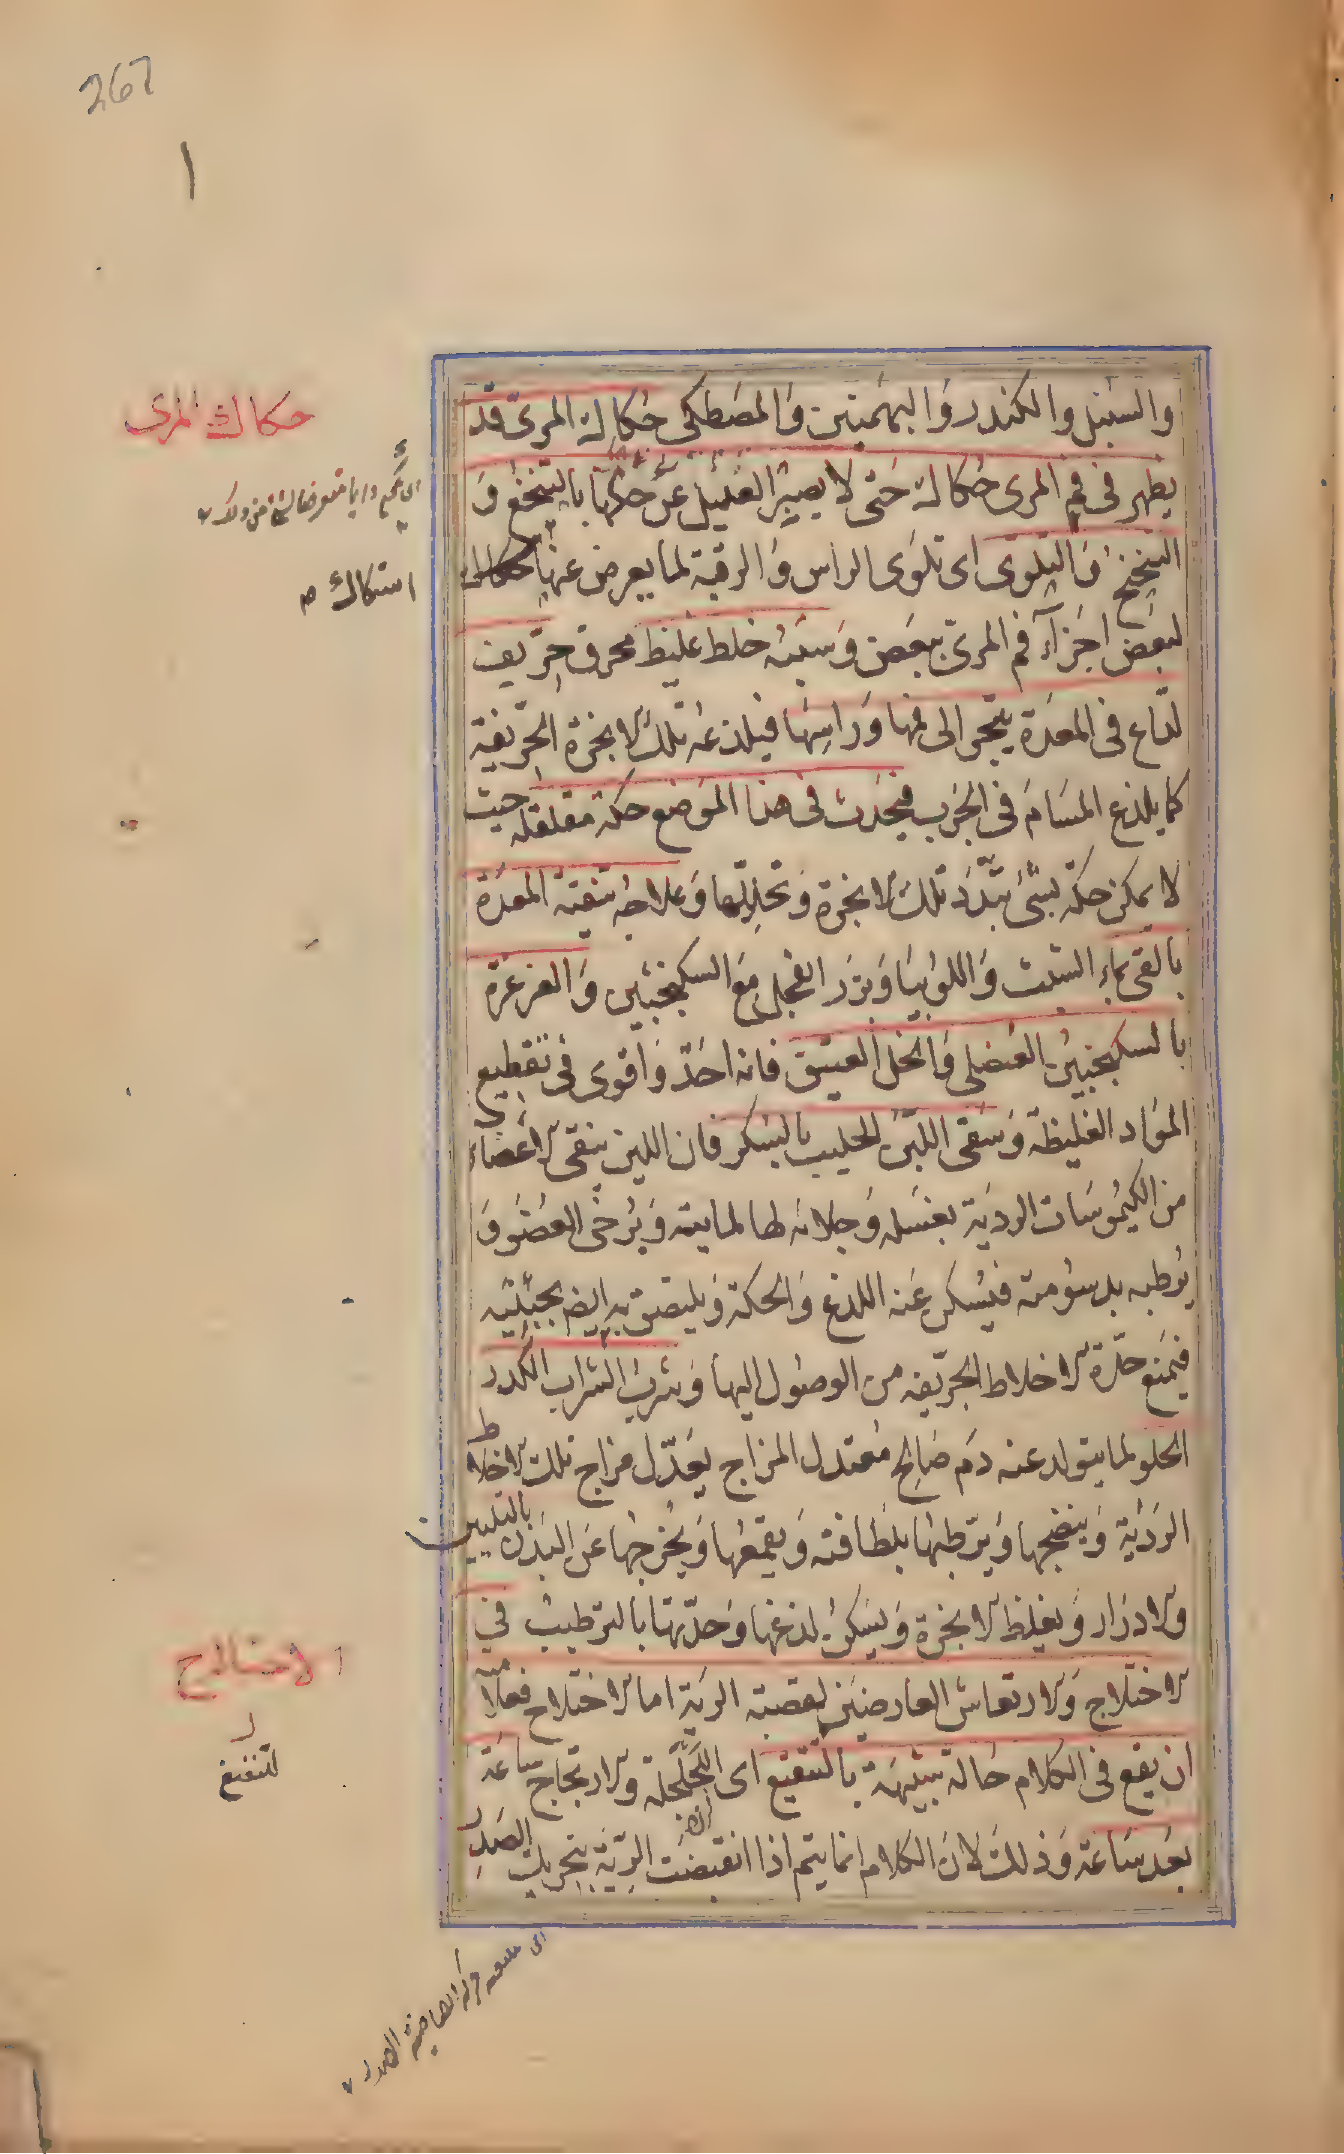 267
١
والسنبل والكندر والبهمنين والمصطكى حكاك المرى قد
يظهر فى فم المرى حكاك حتى لا يصبر العليل عن حكها بالتنخع و
التنحنح والتلوى اى تلوى الراس والرقبة لما يعرض عنها
لبعض اجزآء فم المرى ببعض وسببه خلط غليظ محرق حريف
لذاع فى المعدة يتبخر الى فمها وراسها فيلذعه تلك الابخرة الحريفة
كما يلذع المسام فى الجرب فيحدث فى هذا الموضع حكة مقلقلة حيث
لا يمكن حكه بشئ يبدد تلك الابخرة وتحللها وعلاجه تنقية المعدة
بالقى بماء الشبث واللوبيا وبزر الفجل مع السكنجبين والغرغرة
بالسكنجبين العنصلى والخل العتيق فانه احد واقوى فى تقطيع
المواد الغليظة وسقى اللبن الحليب بالسكر فان اللبن ينقى الاعضاء
من الكيموسات الردية بغسله وجلائه لها لمائيته ويرخى العضو و
يرطبه بدسومته فيسكن عنه اللذع والحكة ويلتصق به ايضا بجبنيته
فيمنع حدة الاخلاط الحريفة من الوصول اليها وشرب الشراب الكدر
الحلو لما يتولد عنه دم صالح معتدل المزاج يعدل مزاج تلك الاخلاط
الردئية وينضجها ويرطبها بلطافته ويقمعها ويخرجها عن البدن بالتليين
والادرار ويغلظ الابخرة ويسكن لذعها وحدتها بالترطيب فى
الاختلاج والارتعاش العارضين لقصبة الرية اما الاختلاج فعلامته
ان يقع فى الكلام حالة شبيهة بالتتعتع اى اللجلجلة والارتجاج ساعة
بعد ساعة وذلك لان الكلام انما يتم اذا انقبضت الرية بتحريك الصدر
حكاك المرى
استكاك
الاختلاج
اى حركة الصدر